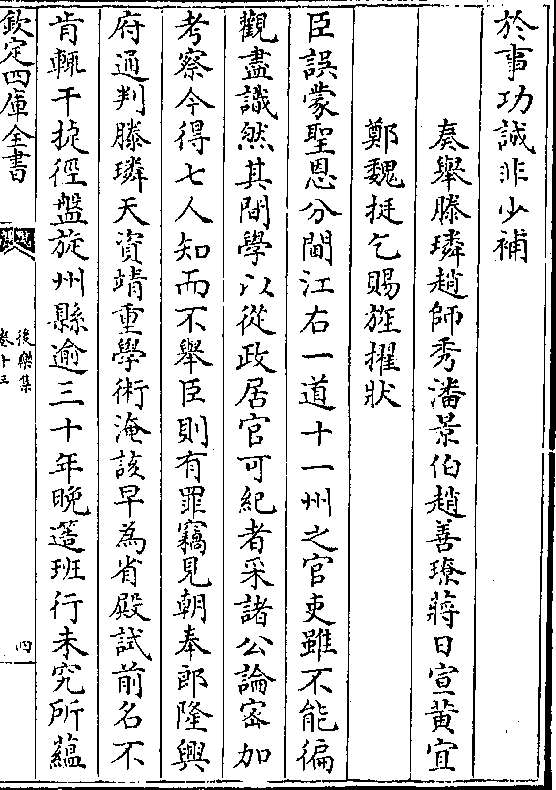 於事功誠非少補
奏舉滕璘趙師秀潘景伯趙善璙蔣日宣黃宜
鄭魏挺乞賜旌擢狀
臣誤蒙聖恩分閫江右一道十一州之官吏雖不能徧
觀盡識然其間學以從政居官可紀者采諸公論宻加
考察今得七人知而不舉臣則有罪竊見朝奉郎隆興
府通判滕璘天資靖重學術淹該早為省殿試前名不
肯輒干捷徑盤旋州縣逾三十年晚簉班行未究所蘊
欽定四庫全書
後樂集
卷十三
四